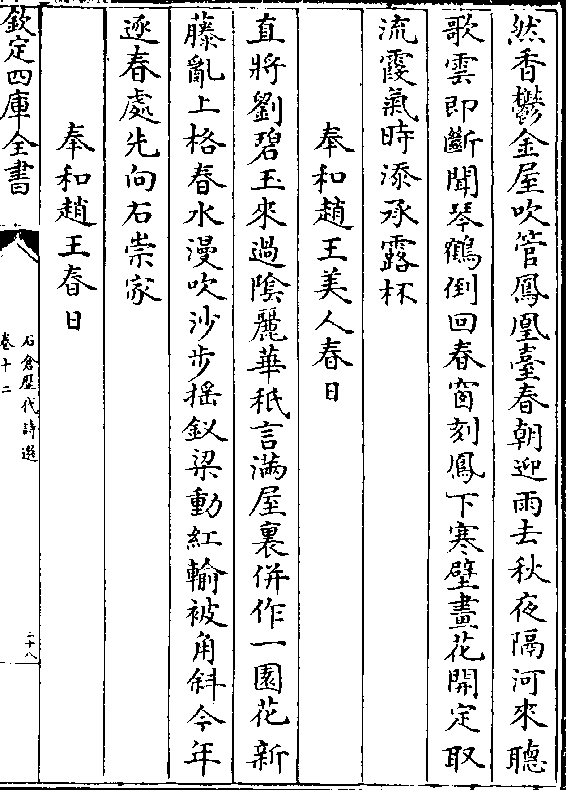 然香鬱金屋吹管鳳凰臺春朝迎雨去秋夜隔河來聽
歌雲即斷聞琴鶴倒回春窗刻鳳下寒壁畫花開定取
流霞氣時添承露杯
奉和趙王美人春日
直將劉碧玉來過隂麗華秖言滿屋裏併作一園花新
藤亂上格春水漫吹沙步揺釵梁動紅輸被角斜今年
逐春處先向石崇家
奉和趙王春日
欽定四庫全書
石倉歷代詩選
卷十二
二十八